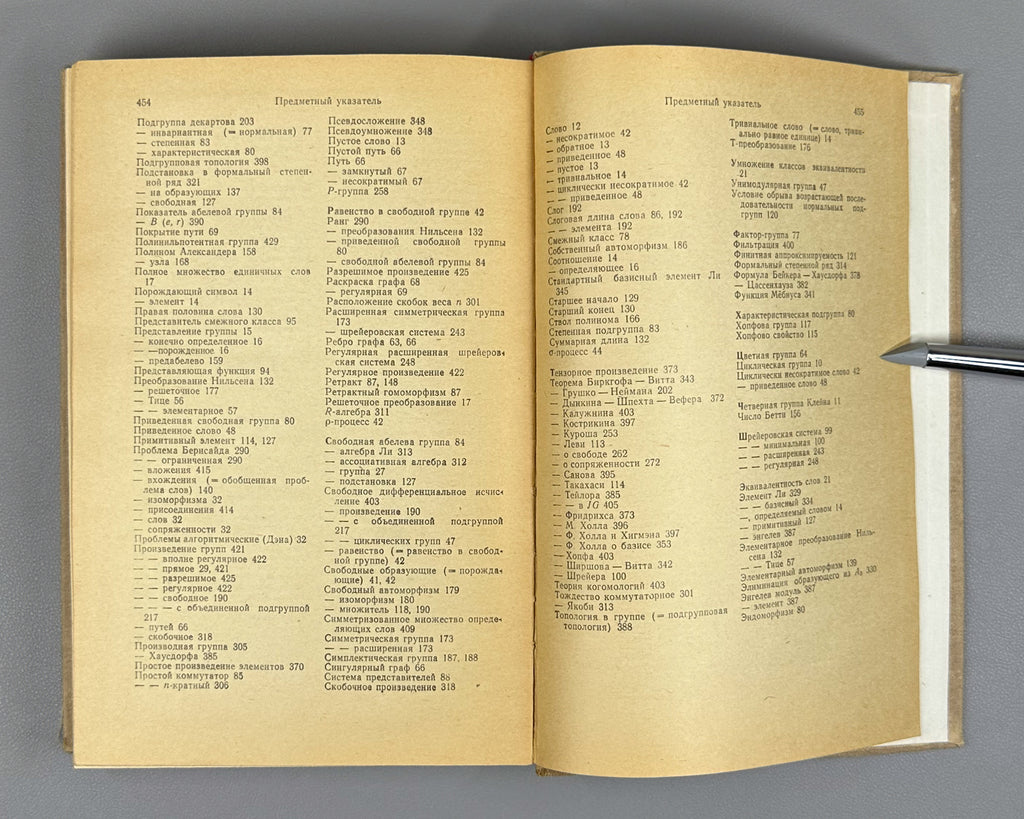 454
Предметный указатель
Подгруппа декартова 203
— инвариантная (= нормальная) 77
— степенная 83
— характеристическая 80
Подгрупповая топология 398
Подстановка в формальный степен-
ной ряд 321
— на образующих 137
— свободная 127
Показатель абелевой группы 84
— B (e, r) 390
Покрытие пути 69
Полинильпотентная группа 429
Полином Александера 158
— узла 168
Полное множество единичных слов
17
Порождающий символ 14
— элемент 14
Правая половина слова 130
Представитель смежного класса 95
Представление группы 15
— конечно определенное 16
— —порожденное 16
— предабелево 159
Представляющая функция 94
Преобразование Нильсена 132
— решеточное 177
— Тице 56
— — элементарное 57
Приведенная свободная группа 80
Приведенное слово 48
Примитивный элемент 114, 127
Проблема Бернсайда 290
— — ограниченная 290
— вложения 415
— вхождения (= обобщенная проб-
лема слов) 140
— изоморфизма 32
— присоединения 414
— слов 32
— сопряженности 32
Проблемы алгоритмические (Дэна) 32
Произведение групп 421
— — вполне регулярное 422
— — прямое 29, 421
— — разрешимое 425
— — регулярное 422
— — свободное 190
— — — с объединенной подгруппой
217
— путей 66
— скобочное 318
Производная группа 305
— Хаусдорфа 385
Простое произведение элементов 370
Простой коммутатор 85
— — n-кратный 306
Псевдосложение 348
Псевдоумножение 348
Пустое слово 13
Пустой путь 66
Путь 66
— замкнутый 67
— несократимый 67
P-группа 258
Равенство в свободной группе 42
Ранг 290
— преобразования Нильсена 132
— приведенной свободной группы
80
— свободной абелевой группы 84
Разрешимое произведение 425
Раскраска графа 68
— регулярная 69
Расположение скобок веса n 301
Расширенная симметрическая группа
173
— шрейеровская система 243
Ребро графа 63, 66
Регулярная расширенная шрейеров-
ская система 248
Регулярное произведение 422
Ретракт 87, 148
Ретрактный гомоморфизм 87
Решеточное преобразование 17
R-алгебра 311
ρ-процесс 42
Свободная абелева группа 84
— алгебра Ли 313
— ассоциативная алгебра 312
— группа 27
— подстановка 127
Свободное дифференциальное исчис-
ление 403
— произведение 190
— — с объединенной подгруппой
217
— — циклических групп 47
— равенство (= равенство в свобод-
ной группе) 42
Свободные образующие (= порожда-
ющие) 41, 42
Свободный автоморфизм 179
— изоморфизм 180
— множитель 118, 190
Симметризованное множество опреде-
ляющих слов 409
Симметрическая группа 173
— — расширенная 173
Симплектическая группа 187, 188
Сингулярный граф 66
Система представителей 88
Скобочное произведение 318
Предметный указатель
455
Слово 12
— несократимое 42
— обратное 13
— приведенное 48
— пустое 13
— тривиальное 14
— циклически несократимое 42
— — приведенное 48
Слог 192
Слоговая длина слова 86, 192
— — элемента 192
Смежный класс 78
Собственный автоморфизм 186
Соотношение 14
— определяющее 16
Стандартный базисный элемент Ли
345
Старшее начало 129
Старший конец 130
Ствол полинома 166
Степенная подгруппа 83
Суммарная длина 132
σ-процесс 44
Тензорное произведение 373
Теорема Биркгофа — Витта 343
— Грушко — Неймана 202
— Дынкина — Шпехта — Вефера 372
— Калужнина 403
— Кострикина 397
— Куроша 253
— Леви 113
— о свободе 262
— о сопряженности 272
— Санова 395
— Такахаси 114
— Тейлора 385
— — в JG 405
— Фридрихса 373
— М. Холла 396
— Ф. Холла и Хигмэна 397
— Ф. Холла о базисе 353
— Хопфа 403
— Ширшова — Витта 342
— Шрейера 100
Теория когомологий 403
Тождество коммутаторное 301
— Якоби 313
Топология в группе (= подгрупповая
топология) 388
Тривиальное слово (= слово, триви-
ально равное единице) 14
Т-преобразование 176
Умножение классов эквивалентности
21
Унимодулярная группа 47
Условие обрыва возрастающей после-
довательности нормальных под-
групп 120
Фактор-группа 77
Фильтрация 400
Финитная аппроксимируемость 121
Формальный степенной ряд 314
Формула Бейкера — Хаусдорфа 378
— Цассенхауза 382
Функция Мёбиуса 341
Характеристическая подгруппа 80
Хопфова группа 117
Хопфово свойство 115
Цветная группа 64
Циклическая группа 10
Циклически несократимое слово 42
— приведенное слово 48
Четверная группа Клейна 11
Число Бетти 156
Шрейеровская система 99
— — минимальная 100
— — расширенная 243
— — регулярная 248
Эквивалентность слов 21
Элемент Ли 329
— — базисный 334
—, определяемый словом 14
— примитивный 127
— энгелев 387
Элементарное преобразование Ниль-
сена 132
— — Тице 57
Элементарный автоморфизм 139
Элиминация образующего из A₀ 330
Энгелев модуль 387
— элемент 387
Эндоморфизм 80